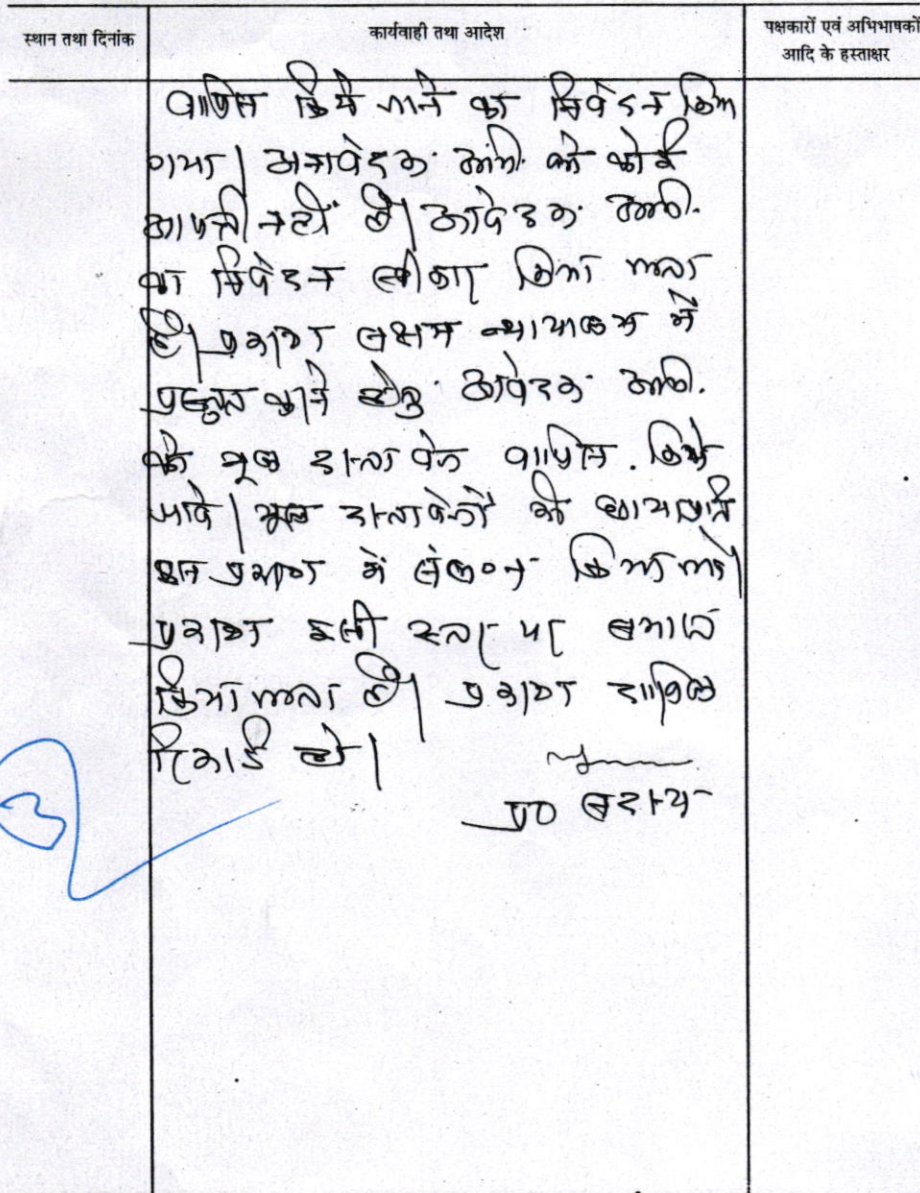 स्थान तथा दिनांक
कार्यवाही तथा आदेश
पक्षकारों एवं अभिभाषकों
आदि के हस्ताक्षर
वापिस किये जाने का निवेदन किया
गया। अनावेदक अभि. को कोई
आपत्ती नहीं है। आवेदक अभि.
का निवेदन स्वीकार किया जाता
है। प्रकरण सक्षम न्यायालय में
प्रस्तुत करने हेतु आवेदक अभि.
को मूल दस्तावेज वापिस किये
जावे। मूल दस्तावेजों की छायाप्रति
इस प्रकरण में संलग्न किया जावे।
प्रकरण इसी स्तर पर समाप्त
किया जाता है। प्रकरण दाखिल
रिकार्ड हो।
प्र० सदस्य